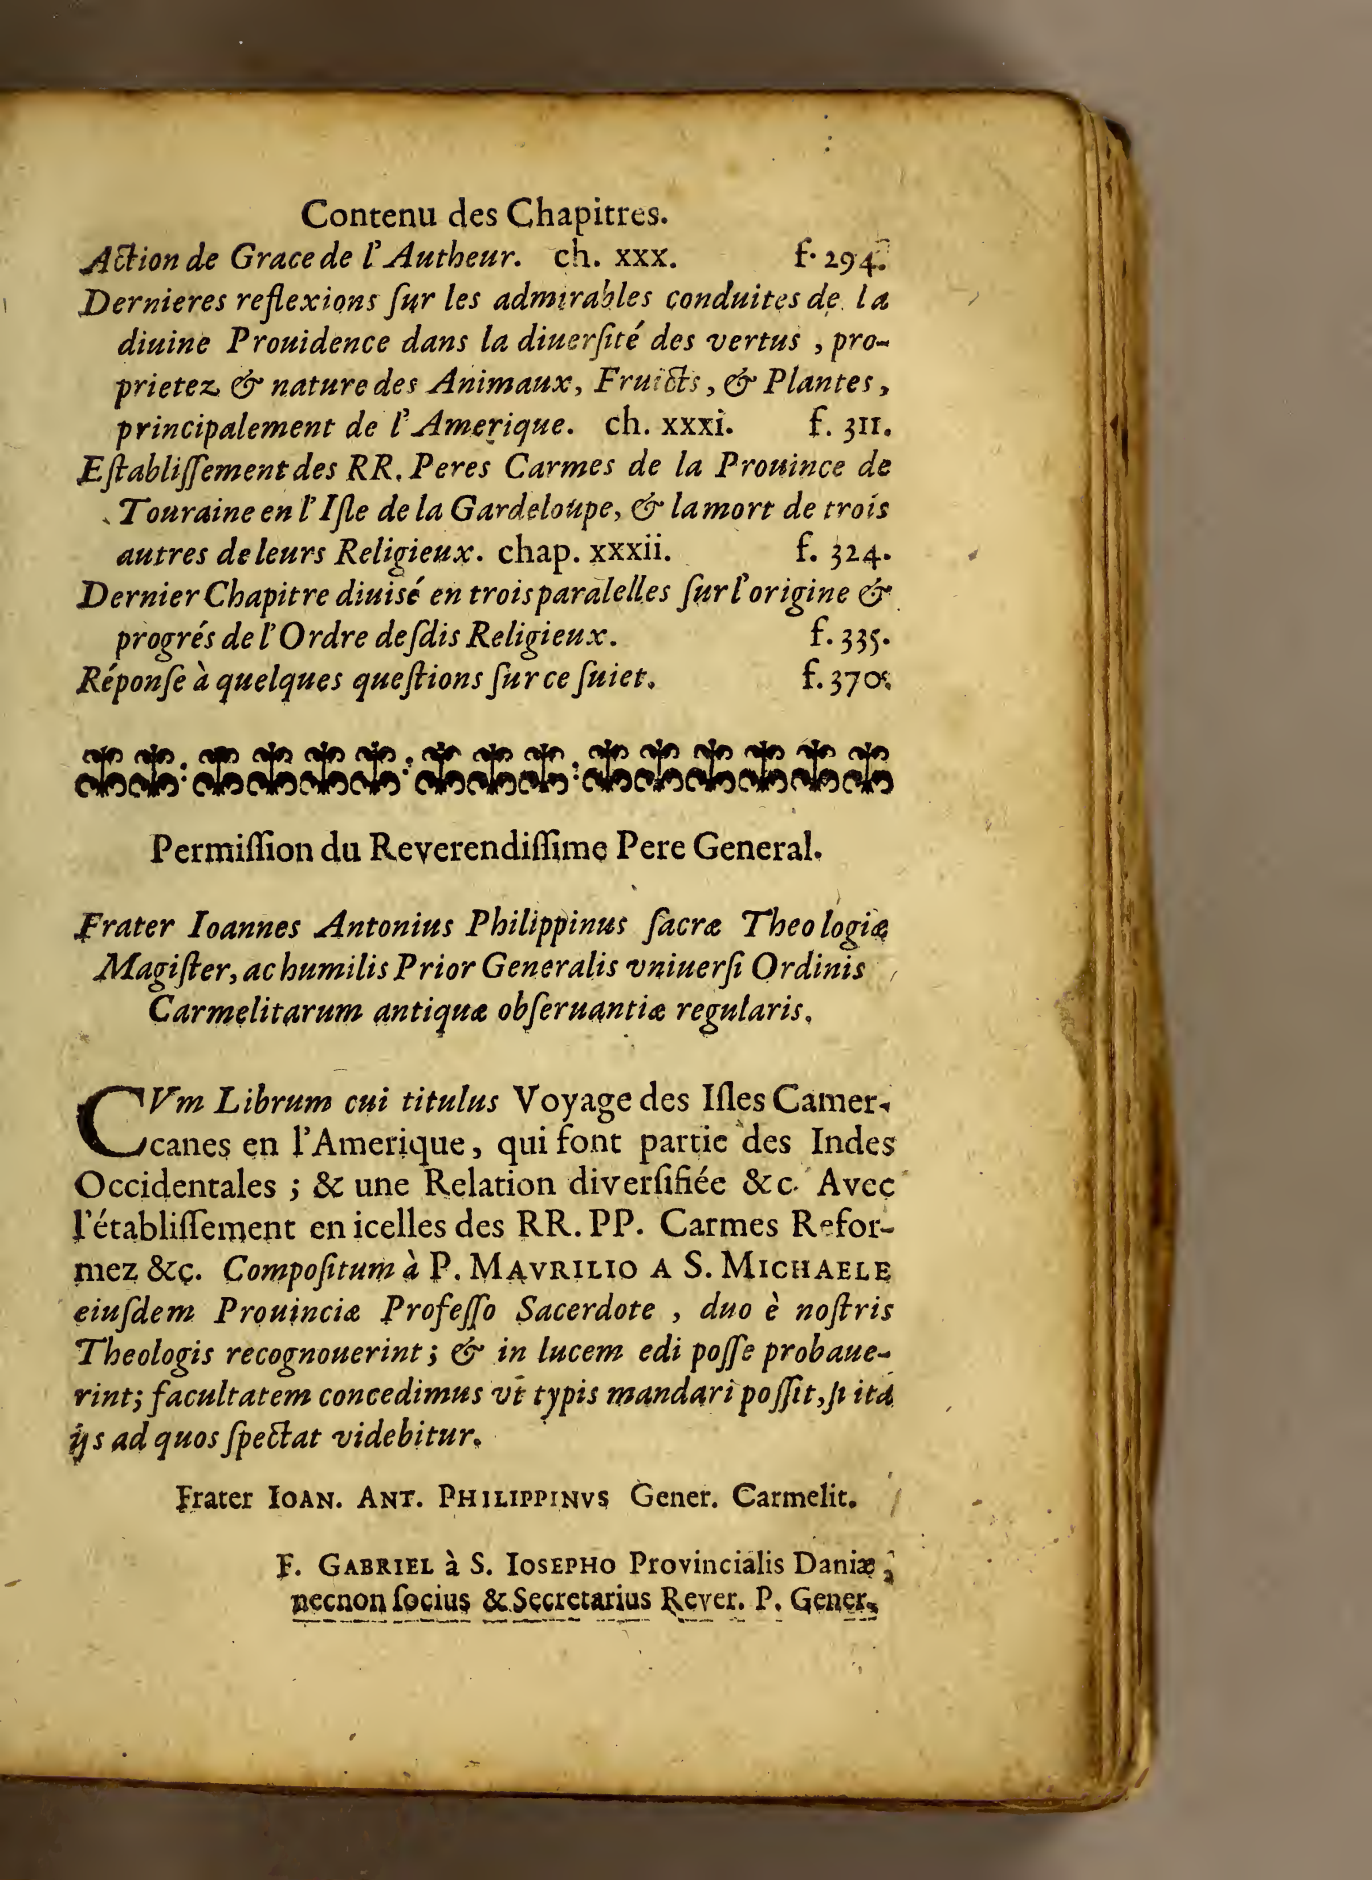 Contenu des Chapitres.
Action de Grace de l'Autheur. ch. xxx. f. 294.
Dernieres reflexions ſur les admirables conduites de la
diuine Prouidence dans la diuerſité des vertus, pro-
prietez & nature des Animaux, Fruicts, & Plantes,
principalement de l'Amerique. ch. xxxi. f. 311.
Eſtabliſſement des RR. Peres Carmes de la Prouince de
Touraine en l'Iſle de la Gardeloupe, & la mort de trois
autres de leurs Religieux. chap. xxxii. f. 324.
Dernier Chapitre diuisé en trois paralelles ſur l'origine &
progrés de l'Ordre deſdis Religieux. f. 335.
Réponſe à quelques queſtions ſur ce ſuiet. f. 370.
Permiſſion du Reverendiſſime Pere General.
Frater Ioannes Antonius Philippinus ſacræ Theologiæ
Magiſter, ac humilis Prior Generalis vniuerſi Ordinis
Carmelitarum antiquæ obſeruantiæ regularis.
CVm Librum cui titulus Voyage des Iſles Camer-
canes en l'Amerique, qui font partie des Indes
Occidentales ; & une Relation diverſifiée &c. Avec
l'établiſſement en icelles des RR. PP. Carmes Refor-
mez &c. Compoſitum à P. MAVRILIO A S. MICHAELE
eiuſdem Prouinciæ Profeſſo Sacerdote , duo è noſtris
Theologis recognouerint ; & in lucem edi poſſe probaue-
rint; facultatem concedimus vt typis mandari poſſit, ſi ita
ijs ad quos ſpectat videbitur.
Frater IOAN. ANT. PHILIPPINVS Gener. Carmelit.
F. GABRIEL à S. IOSEPHO Provincialis Daniæ,
necnon ſocius & Secretarius Rever. P. Gener.